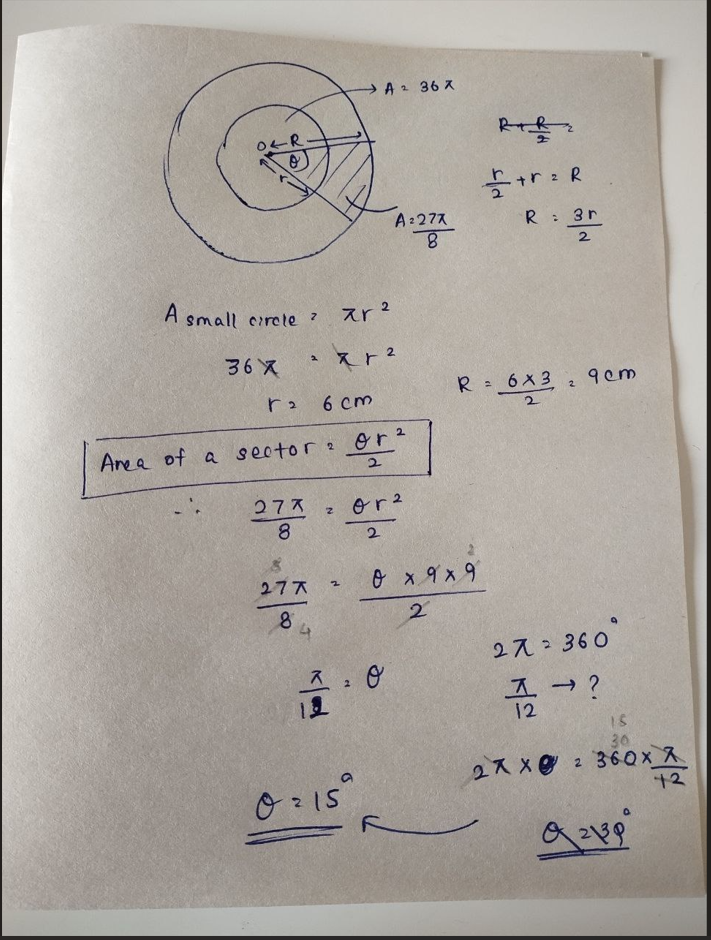 A = 36π
O ← R →
θ
r
A = 27π/8
R + R/2 =
r/2 + r = R
R = 3r/2
A small circle = πr²
36π = πr²
r = 6 cm
R = 6×3/2 = 9 cm
Area of a sector = θr²/2
∴ 27π/8 = θr²/2
27π/8 = θ × 9 × 9/2
3
4
π/12 = θ
2π = 360°
π/12 → ?
15
30
2π × θ = 360 × π/12
θ = 15°
θ = 30°